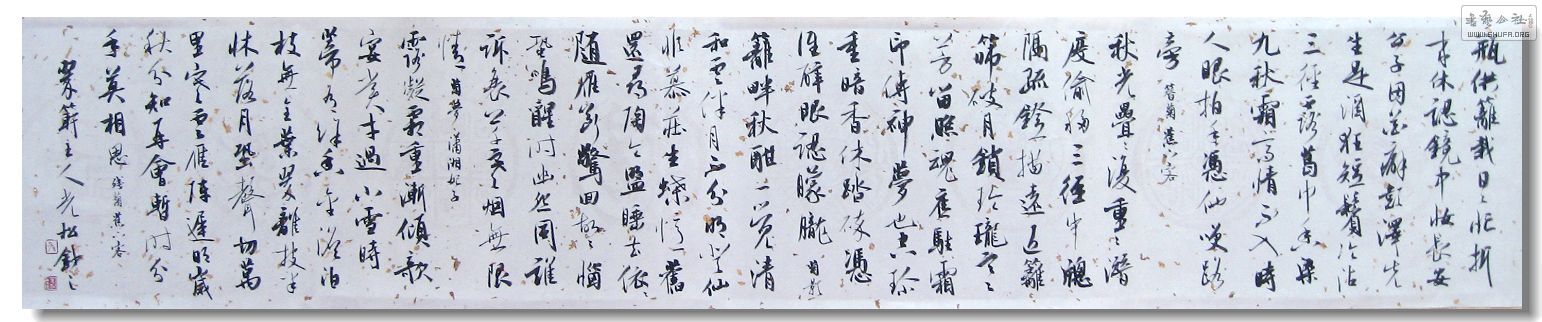 瓶供籬栽日〻忙折
來休認鏡中妝長安
公子因花癖彭澤先
生是酒狂短鬢冷沾
三徑露葛巾香染
九秋霜高情不入時
人眼拍手憑他笑路
旁 簪菊 蕉下客
秋光疊〻復重〻潛
度偷移三徑中窗
隔疏燈描遠近籬
篩破月鎖玲瓏寒
芳留照魂應駐霜
印傳神夢也空珍
重暗香休踏碎憑
誰醉眼認朦朧 菊影
籬畔秋酣一覺清
和雲伴月不分明登仙
非慕莊生蝶憶舊
還尋陶令盟睡去依
隨雁斷驚回故〻惱
蛩鳴醒時幽怨同誰
訴衰草寒烟無限
情 菊夢 瀟湘妃子
露凝霜重漸傾欹
宴賞才過小雪時
蒂有餘香金淡泊
枝無全葉翠離披半
牀落月蛩聲切萬
里寒雲雁陣遲明歲
秋分知再會暫時分
手莫相思 殘菊 蕉下客
主人光松
书艺公社
WWW.SHUFA.ORG